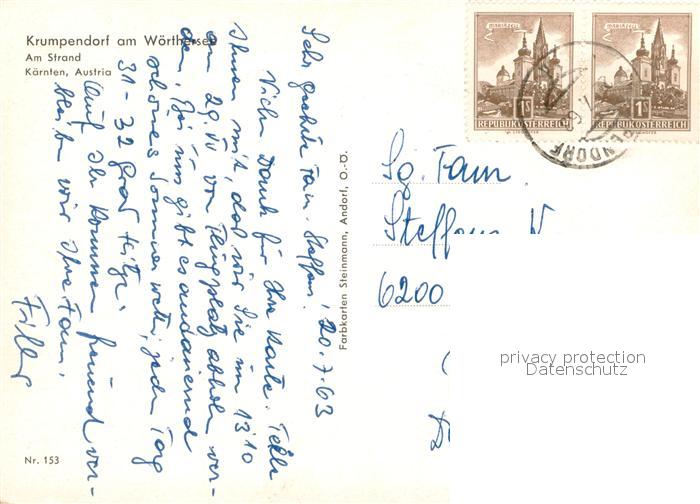 Krumpendorf am Wörthersee
Am Strand
Kärnten, Austria
Sehr geehrte Fam. Steffens! 20.7.63
Vielen Dank für Ihre Karte. Teile
Ihnen mit, daß wir Sie um 13 10
am 29. VII von Flugplatz abholen wer-
den. Bei uns gibt es andauernd
schönes Sommerwetter, jeden Tag
31 - 32 Grad Hitze.
Auf Ihr Kommen freuend ver-
bleiben wir Ihre Fam.
Filler
Nr. 153
Farbkarten Steinmann, Andorf, O.-Ö.
MARIAZELL
1S
REPUBLIK ÖSTERREICH
MARIAZELL
1S
REPUBLIK ÖSTERREICH
ENDORF
Sg. Fam.
Steffens
6200
privacy protection
Datenschutz